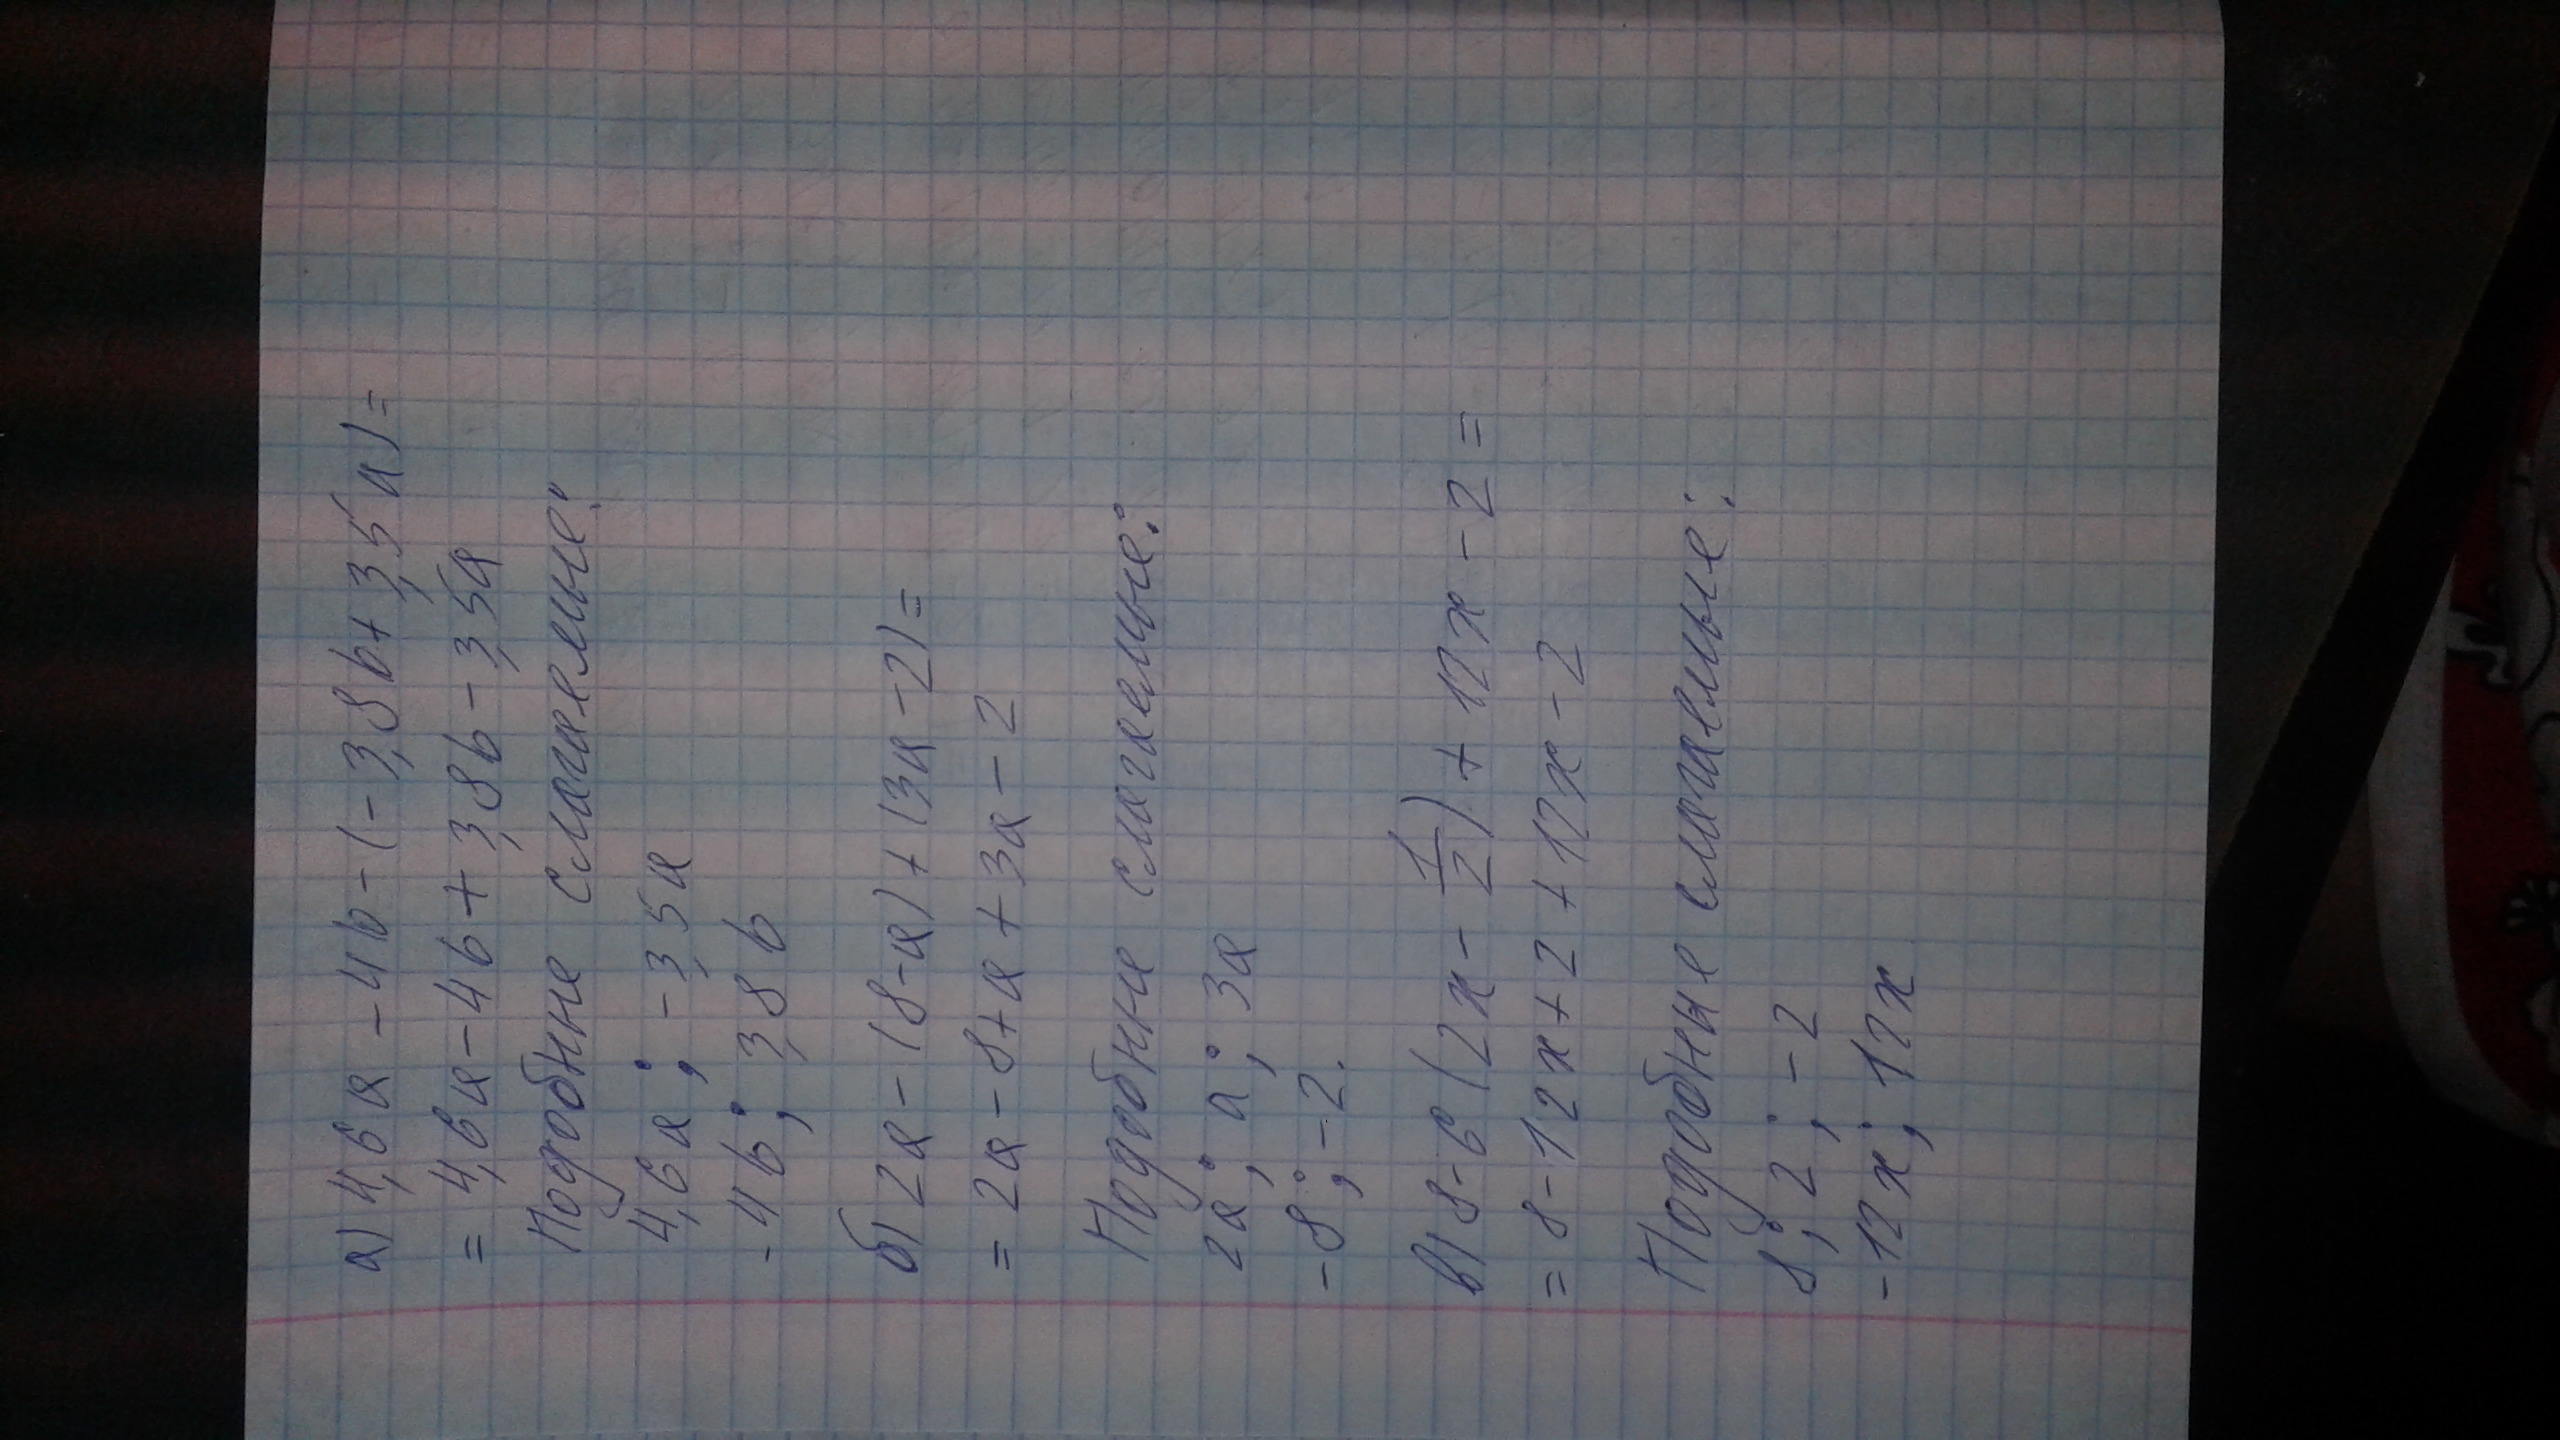 а) 4,6a - 4b - (-3,8b + 3,5a) =
= 4,6a - 4b + 3,8b - 3,5a
Подобнне слагаемые:
4,6a; -3,5a
-4b; 3,8b
б) 2a - (8-a) + (3a - 2) =
= 2a - 8 + a + 3a - 2
Подобнне слагаемые:
2a; a; 3a
-8; -2.
в) 8 - 6 (2x - 1/2) + 12x - 2 =
= 8 - 12x + 2 + 12x - 2
Подобные слагаемые:
8; 2; -2
-12x; 12x